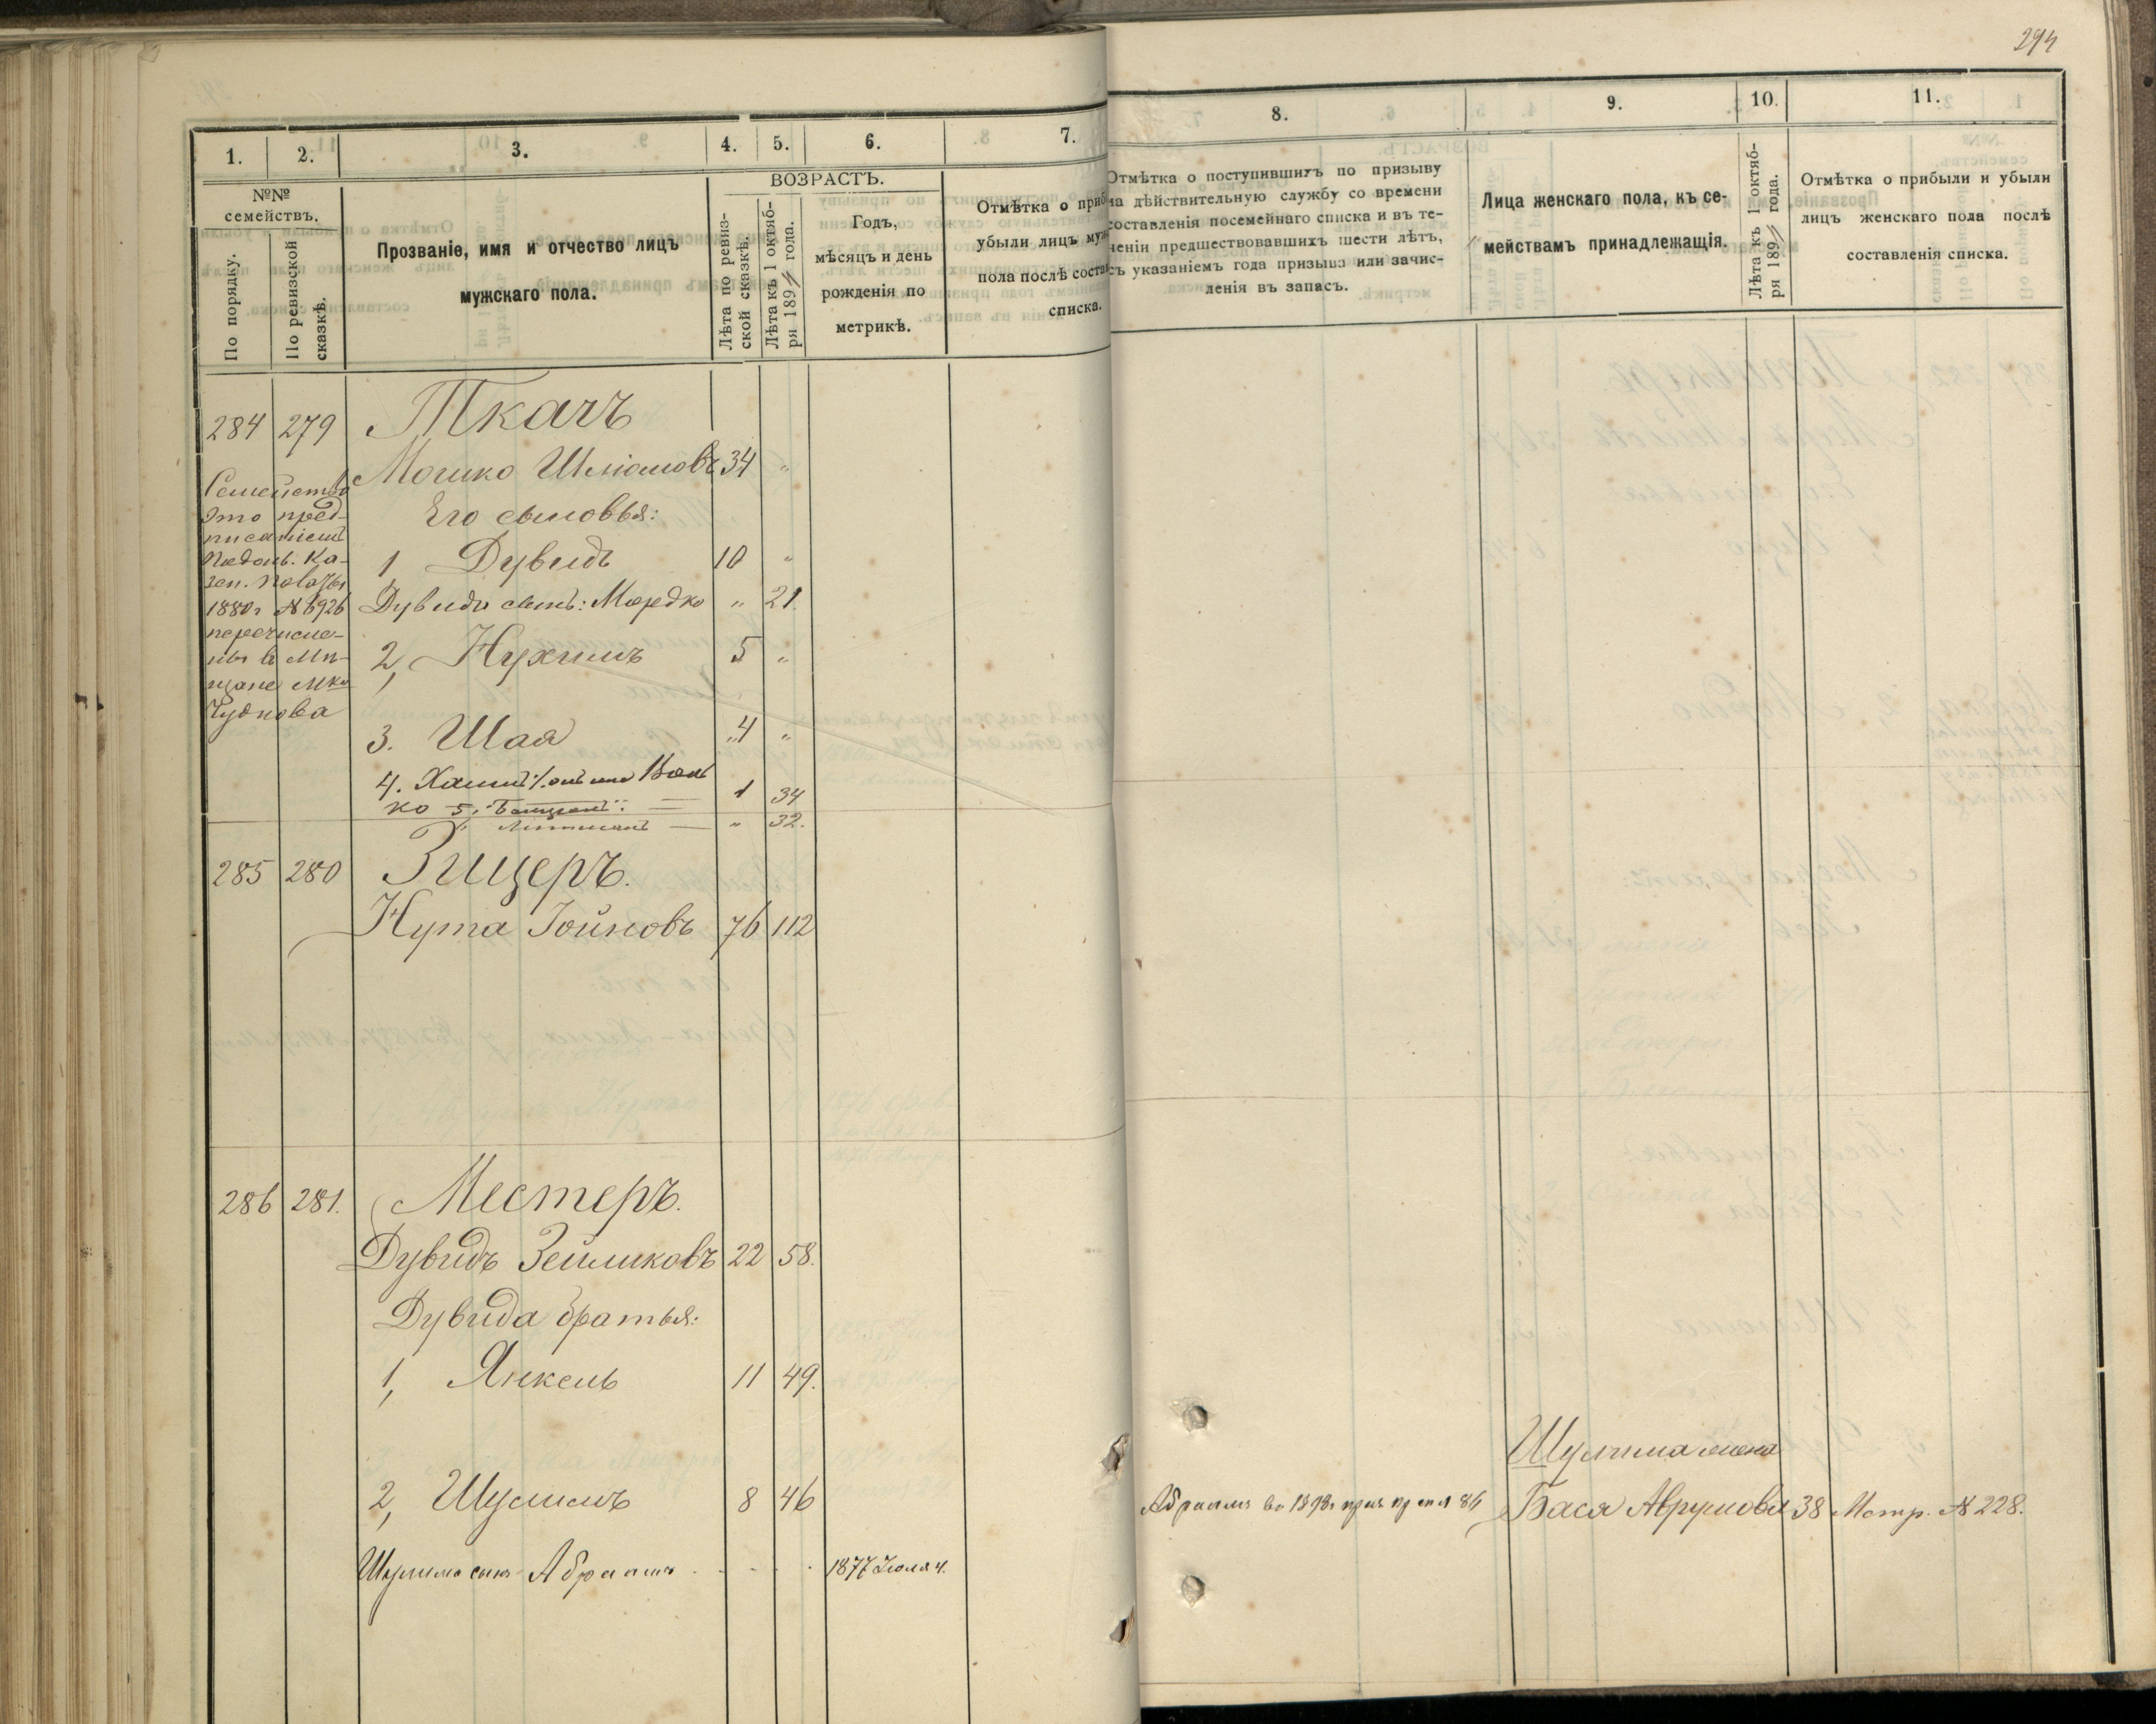 294
1. 2. 3. 4. 5. 6. 7. 8. 9. 10. 11.
№№ семействъ.
По порядку.
По ревизской сказкѣ.
Прозваніе, имя и отчество лицъ
мужскаго пола.
ВОЗРАСТЪ.
Лѣта по ревиз-
ской сказкѣ.
Лѣта къ 1 октяб-
ря 189 года.
Годъ,
мѣсяцъ и день
рожденія по
метрикѣ.
Отмѣтка о приб
убыли лицъ муж
пола послѣ состав
списка.
Отмѣтка о поступившихъ по призыву
на дѣйствительную службу со времени
составленія посемейнаго списка и въ те-
ченіи предшествовавшихъ шести лѣтъ,
съ указаніемъ года призыва или зачис-
ленія въ запасъ.
Лица женскаго пола, къ се-
мействамъ принадлежащія.
Лѣта къ 1 октяб-
ря 189 года.
Отмѣтка о прибыли и убыли
лицъ женскаго пола послѣ
составленія списка.
284 279 Ткачъ
Мошко Шліомовъ 34 "
Семейство
это пред-
писаніемъ
Ка-
зен. Палаты
1880 г №6926
перечисле-
ны в Мѣ-
щане Мка
Чуднова
Его сыновья:
1 Дувидъ 10 "
Дувида сынъ: Мордко " 21.
2, Нухимъ 5 "
3. Шая "4 "
4. Хаимъ онъ же Воль
ко 1 34
5, Литманъ — " 32.
285 280 Зицеръ.
Нута Іойновъ 76 112
286 281. Местеръ.
Дувидъ Зейликовъ 22 58.
Дувида братья:
1, Янкель 11 49.
2, Шулимъ 8 46
Шулима сынъ Абрамъ . . . . 1877 Іюля 4.
Абрамъ въ 1898г
Шулима жена
Бася Аврумова 38 Метр. №228.